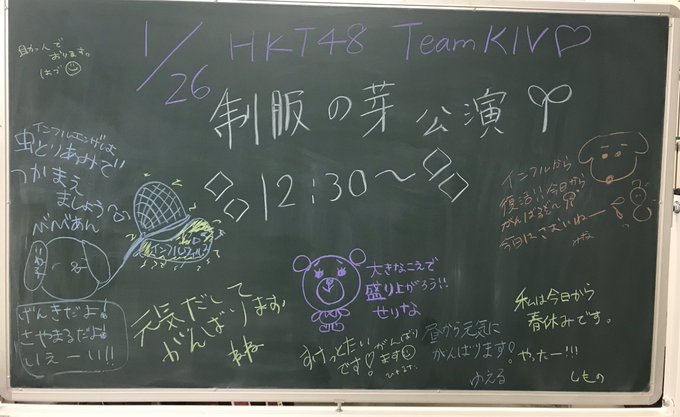 1/26 HKT48 Team KIV♡
制服の芽公演
12:30〜
助かんで
おります。
はづ
インフルエンザは
虫とりあみで!!
つかまえ
ましょう
べべあん
インフルエンザ
げんきだよ!
さやまるだよ!
いぇーい!!
元気だして
がんばります
大きなこえで
盛り上がろう!!
せりな
ずっとたい
です!♡がんばり
ます
昼から元気に
がんばります!
ゆえる
インフルから
復活!!今日から
がんばるぞ〜
今日はさむいねー
私は今日から
春休みです。
やったー!!!
しもの